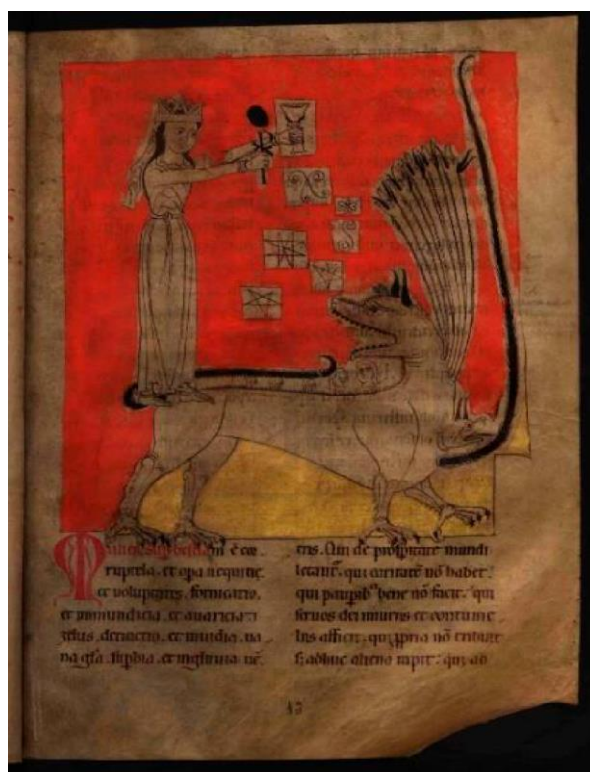 Mulier sup bestiam ē cor-
ruptela. et opa nequitie.
et voluptates. fornicatio.
et inmundicia. et auaricia. 7
zelus. detractio. et inuidia. ua
na gľa. supbia. et ingluuia. uē
tris. Qui de psperitate mundi
letant'. qui caritatē nō habet.
qui paupib' bene nō facit. qui
seruos dei iniuriis et contume
liis afficit. qui ppria nō tribuit
s; adhuc aliena rapit. qui ad
13